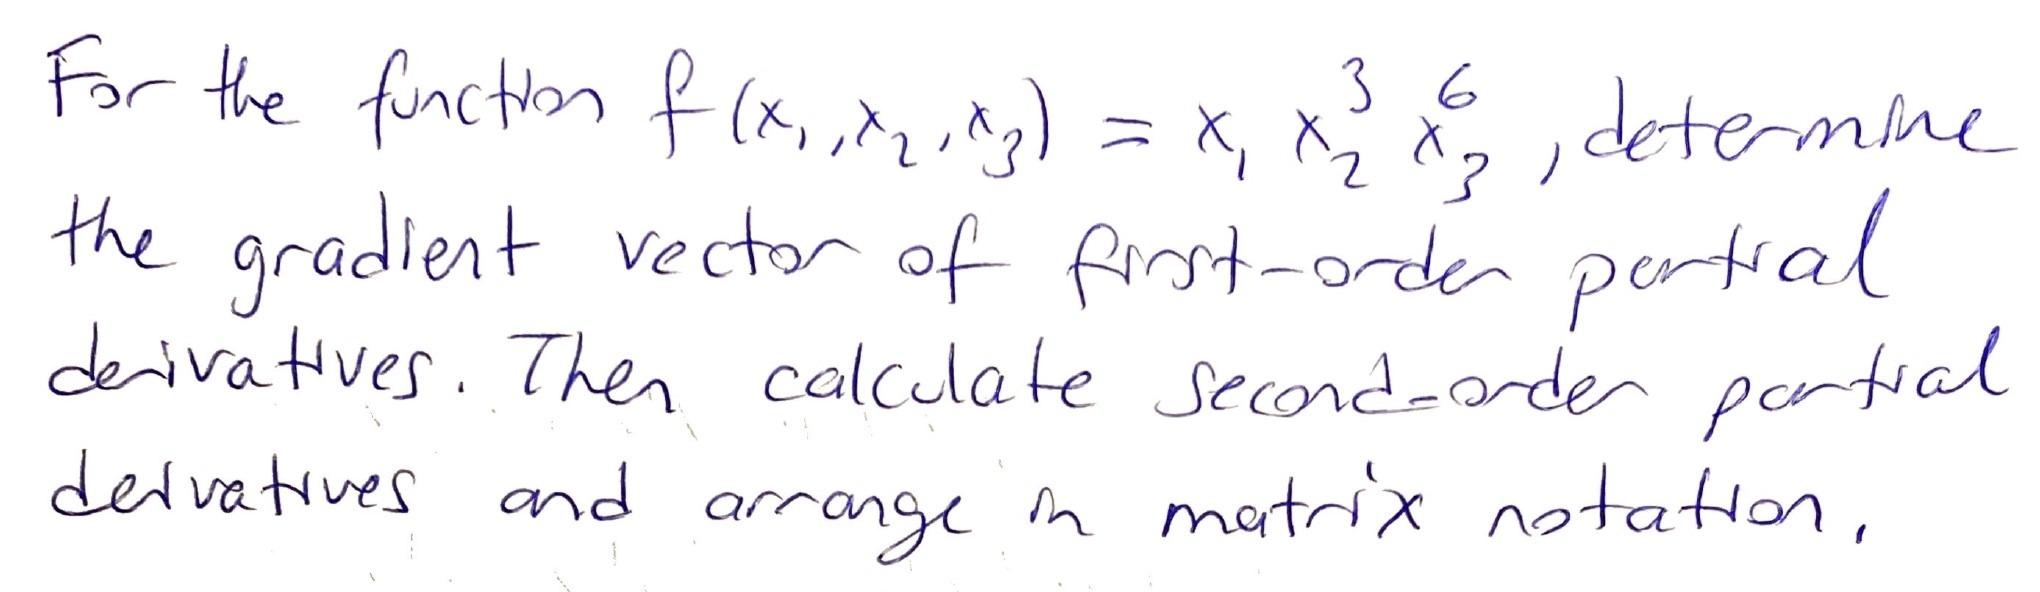 For the function f(x₁,x₂,x₃) = x₁ x₂³ x₃⁶, determine
the gradient vector of first-order partial
derivatives. Then calculate second-order partial
derivatives and arrange in matrix notation.